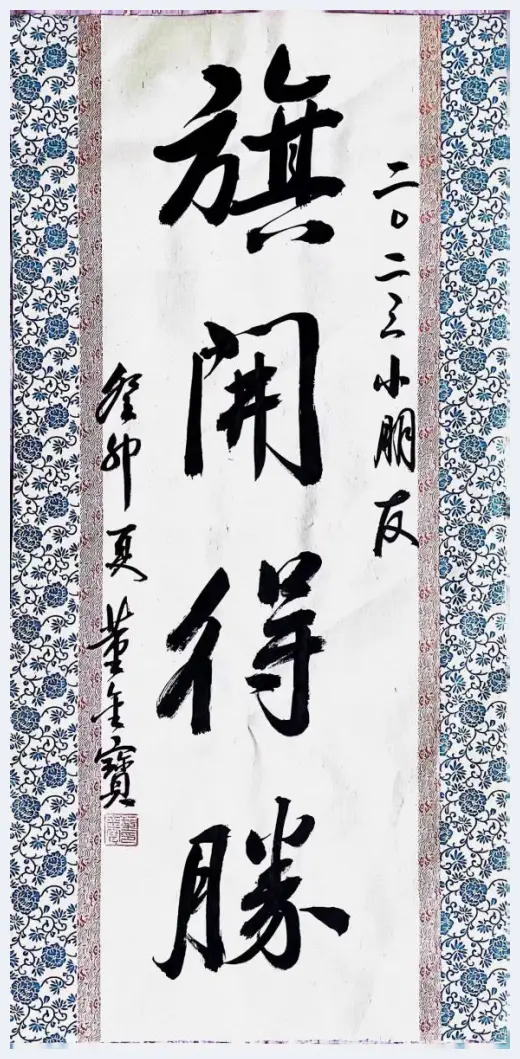 二〇二三小朋友
旗開得勝
癸卯夏董金寶